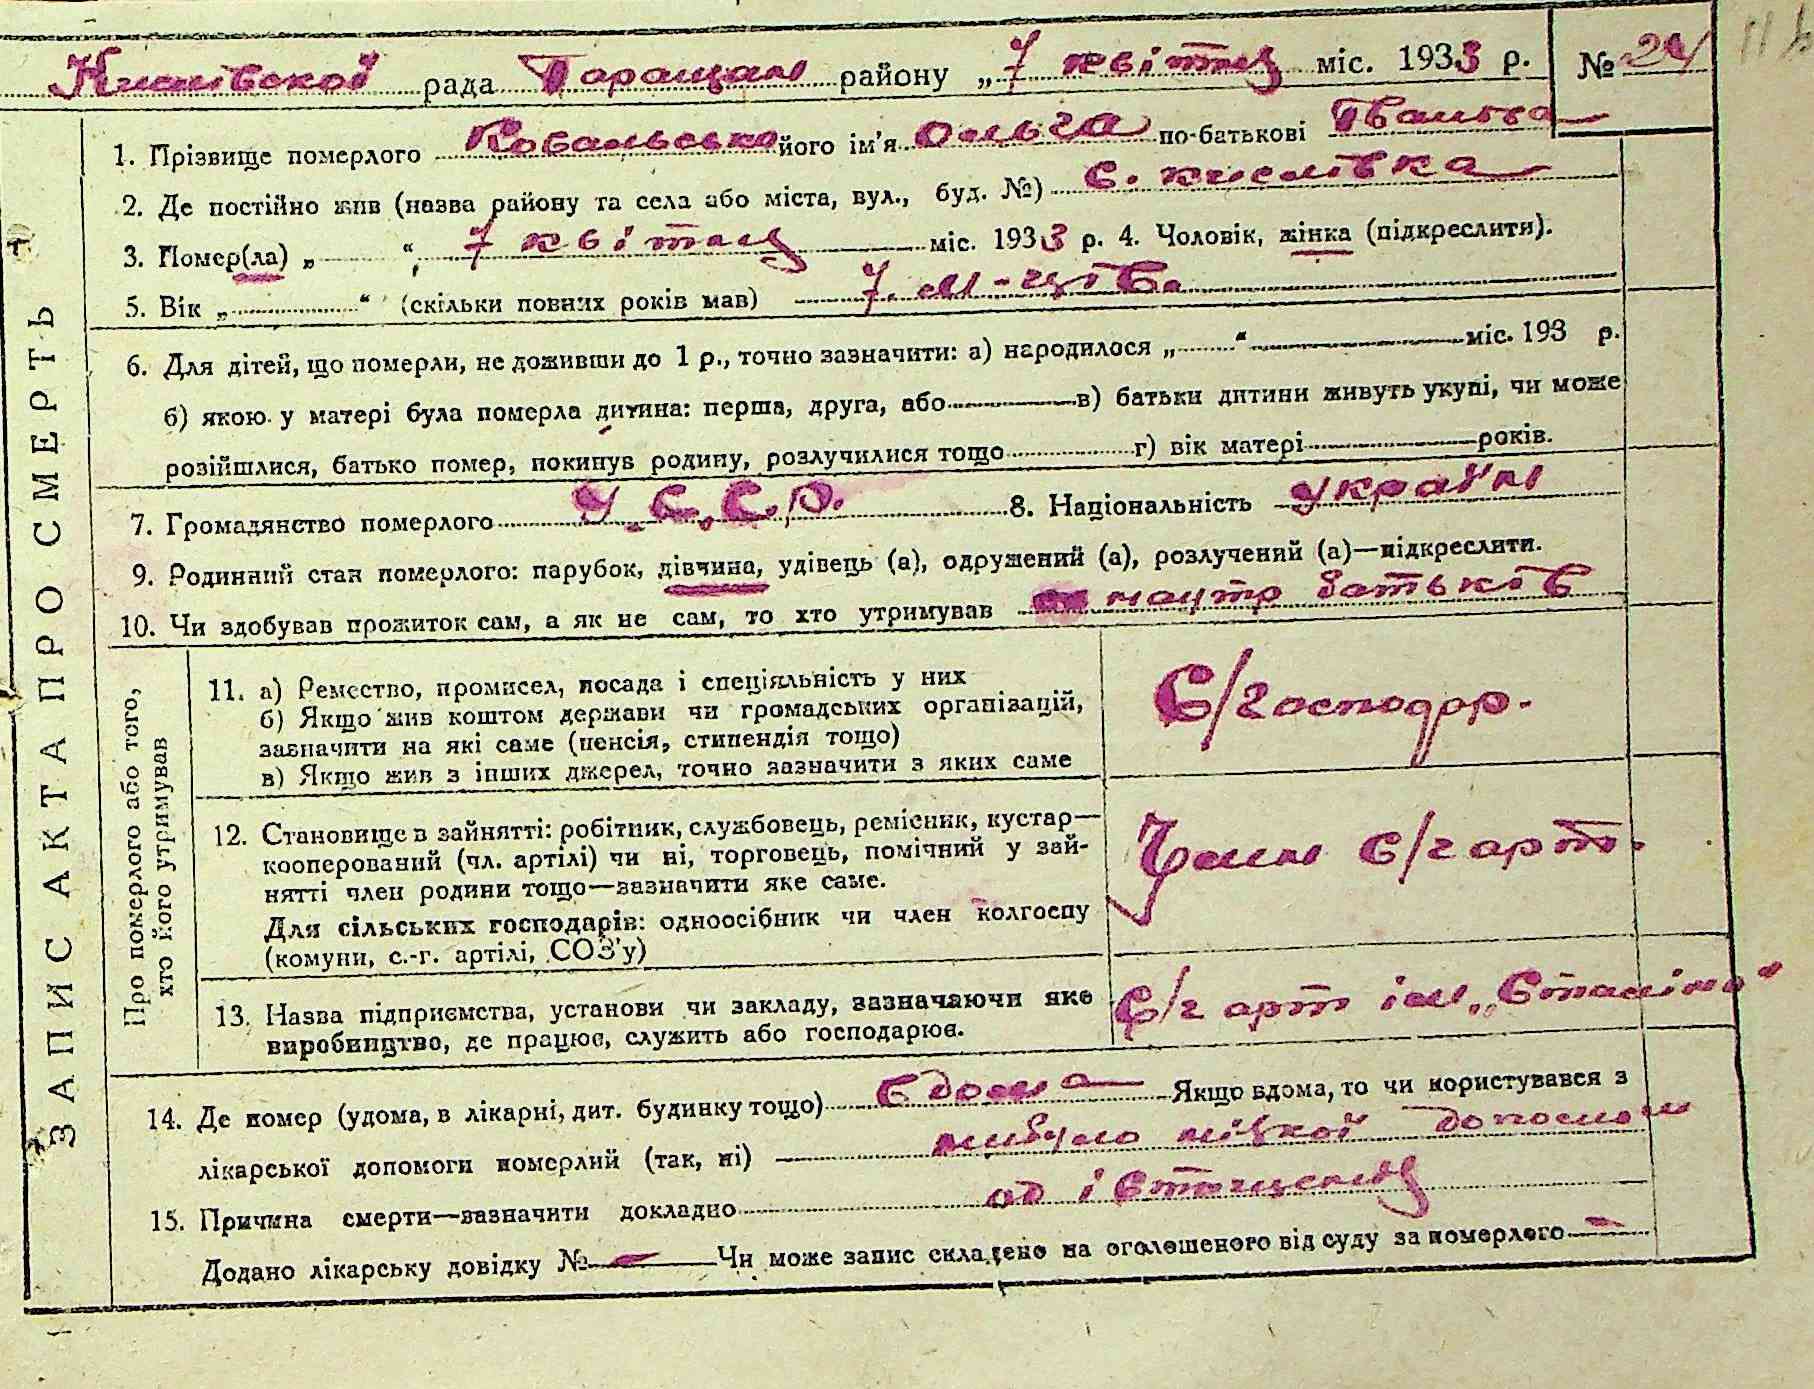 Кислівської рада Таращан району „7 квітня міс. 1933 р. № 24
ЗАПИС АКТА ПРО СМЕРТЬ
1. Прізвище померлого Ковальсько його ім'я Ольга по-батькові Іванівна
2. Де постійно жив (назва району та села або міста, вул., буд. №) с. Кислівка
3. Помер(ла) „ “ 7 квітня міс. 1933 р. 4. Чоловік, жінка (підкреслити).
5. Вік „ “ (скільки повних років мав) 7 м-ців
6. Для дітей, що померли, не доживши до 1 р., точно зазначити: а) народилося „ “ міс. 193 р.
б) якою у матері була померла дитина: перша, друга, або в) батьки дитини живуть укупі, чи може
розійшлися, батько помер, покинув родину, розлучилися тощо г) вік матері років.
7. Громадянство померлого У.С.С.Р. 8. Національність україн
9. Родинний стан померлого: парубок, дівчина, удівець (а), одружений (а), розлучений (а)—підкреслити.
10. Чи здобував прожиток сам, а як не сам, то хто утримував батьків
Про померлого або того,
хто його утримував
11. а) Ремество, промисел, посада і спеціяльність у них
б) Якщо жив коштом держави чи громадських організацій,
зазначити на які саме (пенсія, стипендія тощо)
в) Якщо жив з інших джерел, точно зазначити з яких саме
С/господар.
12. Становище в зайнятті: робітник, службовець, ремісник, кустар—
кооперований (чл. артілі) чи ні, торговець, помічний у зай-
нятті член родини тощо—зазначити яке саме.
Для сільських господарів: одноосібник чи член колгоспу
(комуни, с.-г. артілі, СОЗ'у)
Член с/г арт.
13. Назва підприємства, установи чи закладу, зазначаючи яке
виробництво, де працює, служить або господарює.
С/г арт ім „Сталіна“
14. Де помер (удома, в лікарні, дит. будинку тощо) вдома Якщо вдома, то чи користувався з
лікарської допомоги померлий (так, ні) небуло ніякої допомоги
15. Причина смерти—зазначити докладно од
Додано лікарську довідку № — Чи може запис складено на оголошеного від суду за померлого —